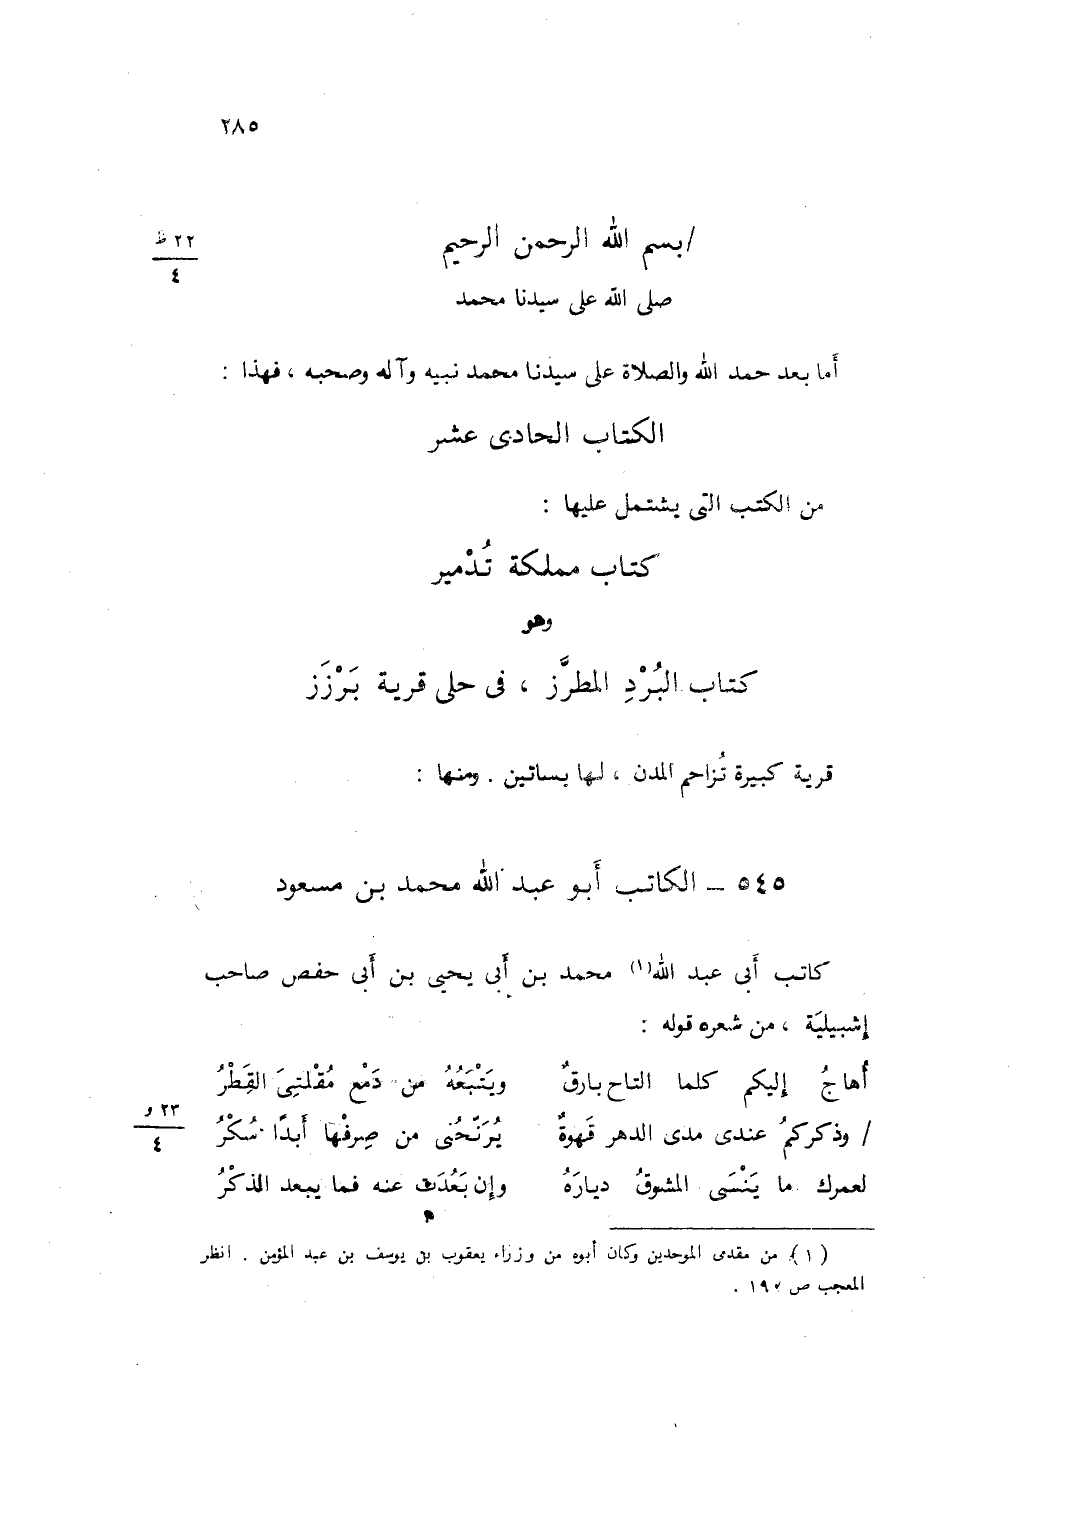 ٢٨٥
/ بسم الله الرحمن الرحيم
٢٢ ظ
٤
صلى الله على سيدنا محمد
أما بعد حمد الله والصلاة على سيدنا محمد نبيه وآله وصحبه ، فهذا :
الكتاب الحادى عشر
من الكتب التى يشتمل عليها :
كتاب مملكة تُدْمير
وهو
كتاب البُرْدِ المطرَّز ، فى حلى قرية بَرْزَز
قرية كبيرة تُزاحم المدن ، لها بساتين . ومنها :
٥٤٥ – الكاتب أبو عبد الله محمد بن مسعود
كاتب أبى عبد الله(١) محمد بن أبى يحيى بن أبى حفص صاحب
إشبيليَة ، من شعره قوله :
أُهاجُ إليكم كلما التاح بارقٌ ويَتْبَعُهُ من دَمْع مُقْلتِىَ القَِطْرُ
٢٣ و
٤
/ وذكركمُ عندى مدى الدهر قَهوةٌ يُرَنِّحُنى من صِرفْها أبدًا سُكْرُ
لعمرك ما يَنْسَى المشوقُ ديارَهُ وإن بَعُدَت عنه فما يبعد الذكْرُ
(١) من مقدمى الموحدين وكان أبوه من وزراء يعقوب بن يوسف بن عبد المؤمن . انظر
المعجب ص ١٩٠ .